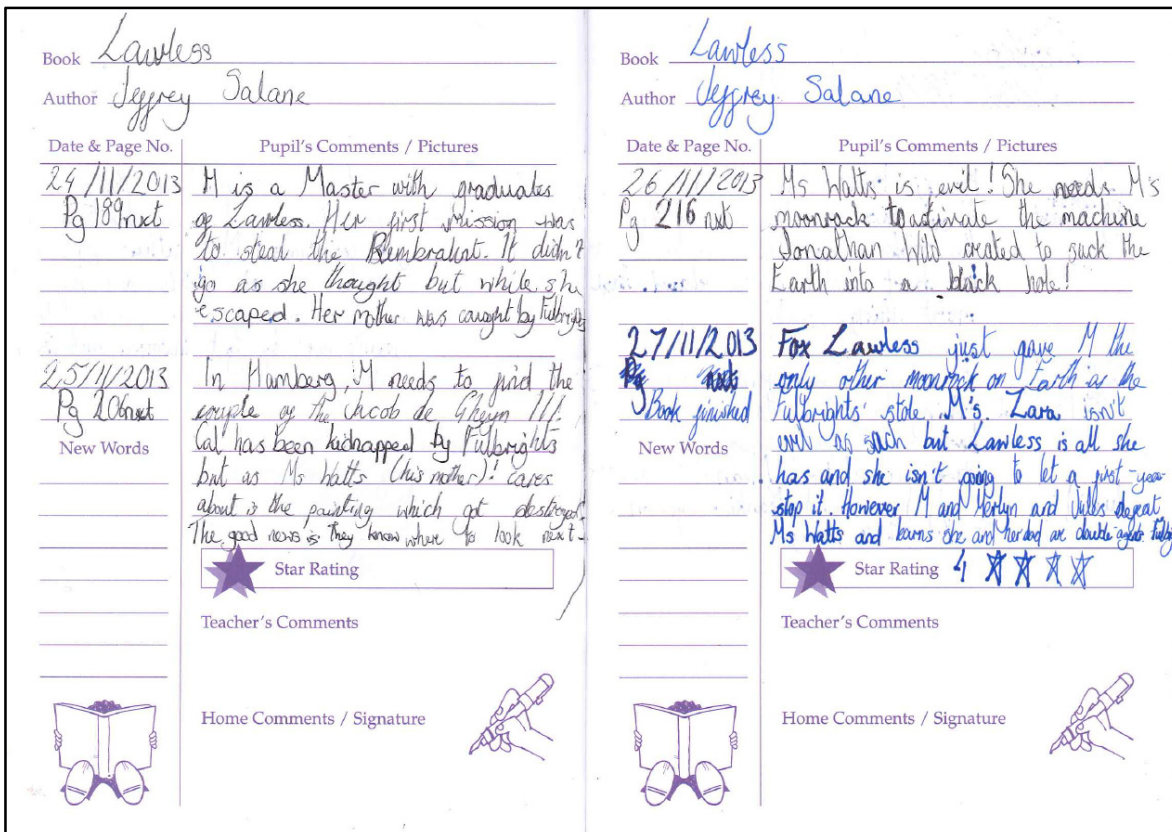 Book Lawless
Author Jeffrey Salane
Date & Page No. Pupil's Comments / Pictures
24/11/2013 M is a Master with graduates
Pg 189 nxt of Lawless. Her first mission was
to steal the Rembrandt. It didn't
go as she thought but while she
escaped. Her mother was caught by Fulbrights
25/11/2013 In Hamberg, M needs to find the
Pg 206 nxt couple of the Jacob de Gheyn III.
New Words Cal has been kidnapped by Fulbrights
but as Ms Watts (his mother)! cares
about is the painting which got destroyed.
The good news is they know where to look next-
Star Rating
Teacher's Comments
Home Comments / Signature
Book Lawless
Author Jeffrey Salane
Date & Page No. Pupil's Comments / Pictures
26/11/2013 Ms Watts is evil! She needs M's
Pg 216 nxt moonrock to activate the machine
Jonathan Wild created to suck the
Earth into a black hole!
27/11/2013 Fox Lawless just gave M the
only other moonrock on Earth as the
Book finished Fulbrights' stole M's. Zara isn't
New Words evil as such but Lawless is all she
has and she isn't going to let a first-year
stop it. However M and Merlyn and Jules defeat
Ms Watts and learns she and her dad are double agents
Star Rating 4
Teacher's Comments
Home Comments / Signature